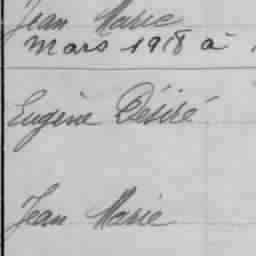 Jean Marie
mars 1918 à
Eugène Désiré
Jean Marie